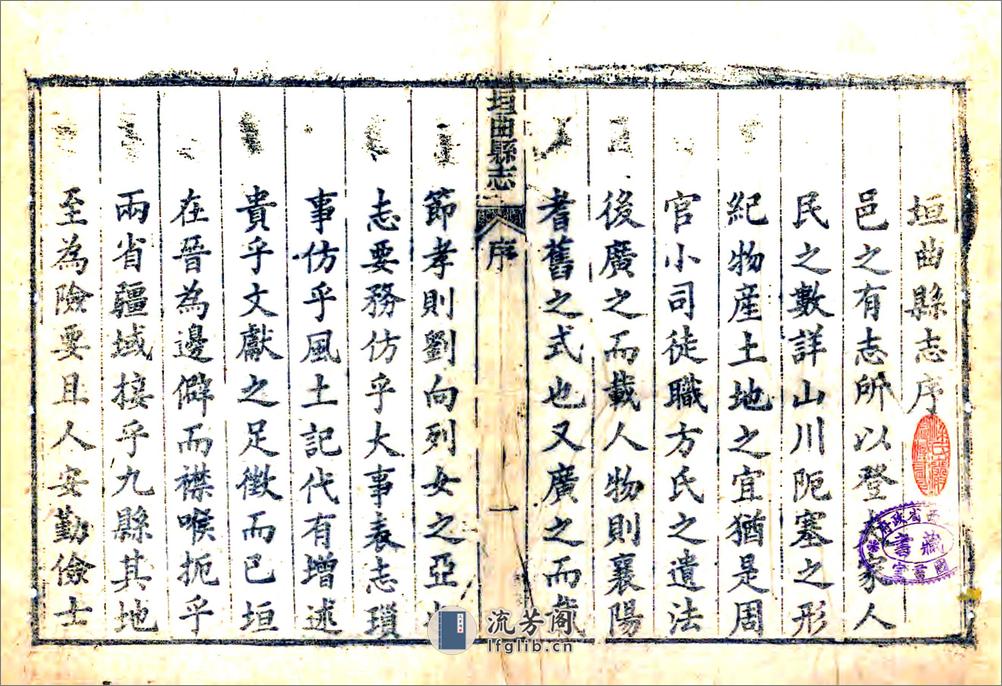 垣曲縣志序
邑之有志所以登家人
民之數詳山川阨塞之形
紀物産土地之宜猶是周
官小司徒職方氏之遺法
後廣之而載人物則襄陽
耆舊之式也又廣之而載
垣曲縣志
序
一
節孝則劉向列女之亞也
志要務仿乎大事表志瑣
事仿乎風土記代有增述
貴乎文獻之足徵而已垣
在晉為邊僻而襟喉扼乎
兩省疆域接乎九縣其地
至為險要且人安勤儉士
流芳阁
lfglib.cn